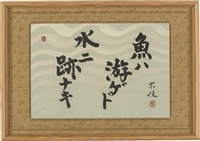 魚ハ
游ゲド
水ニ
跡ナキ